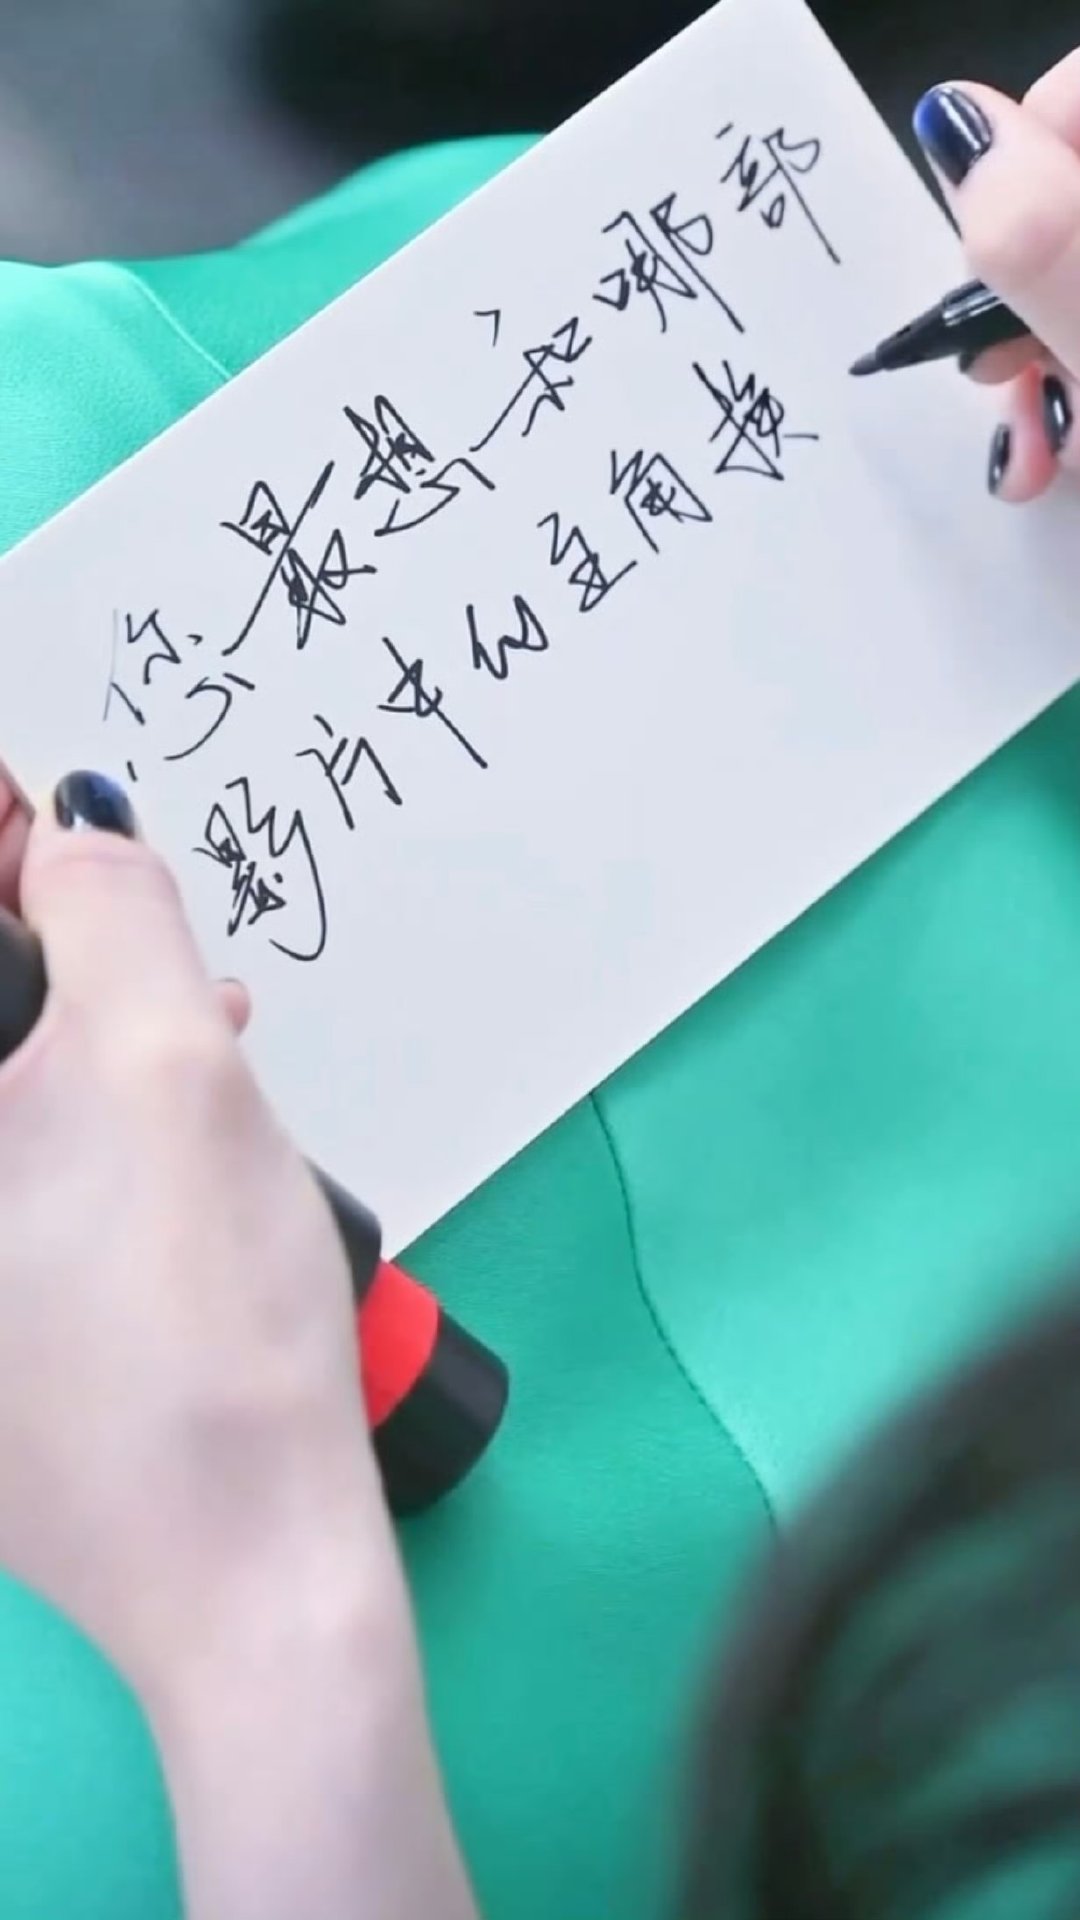 您最想和哪部
影片中的主角換